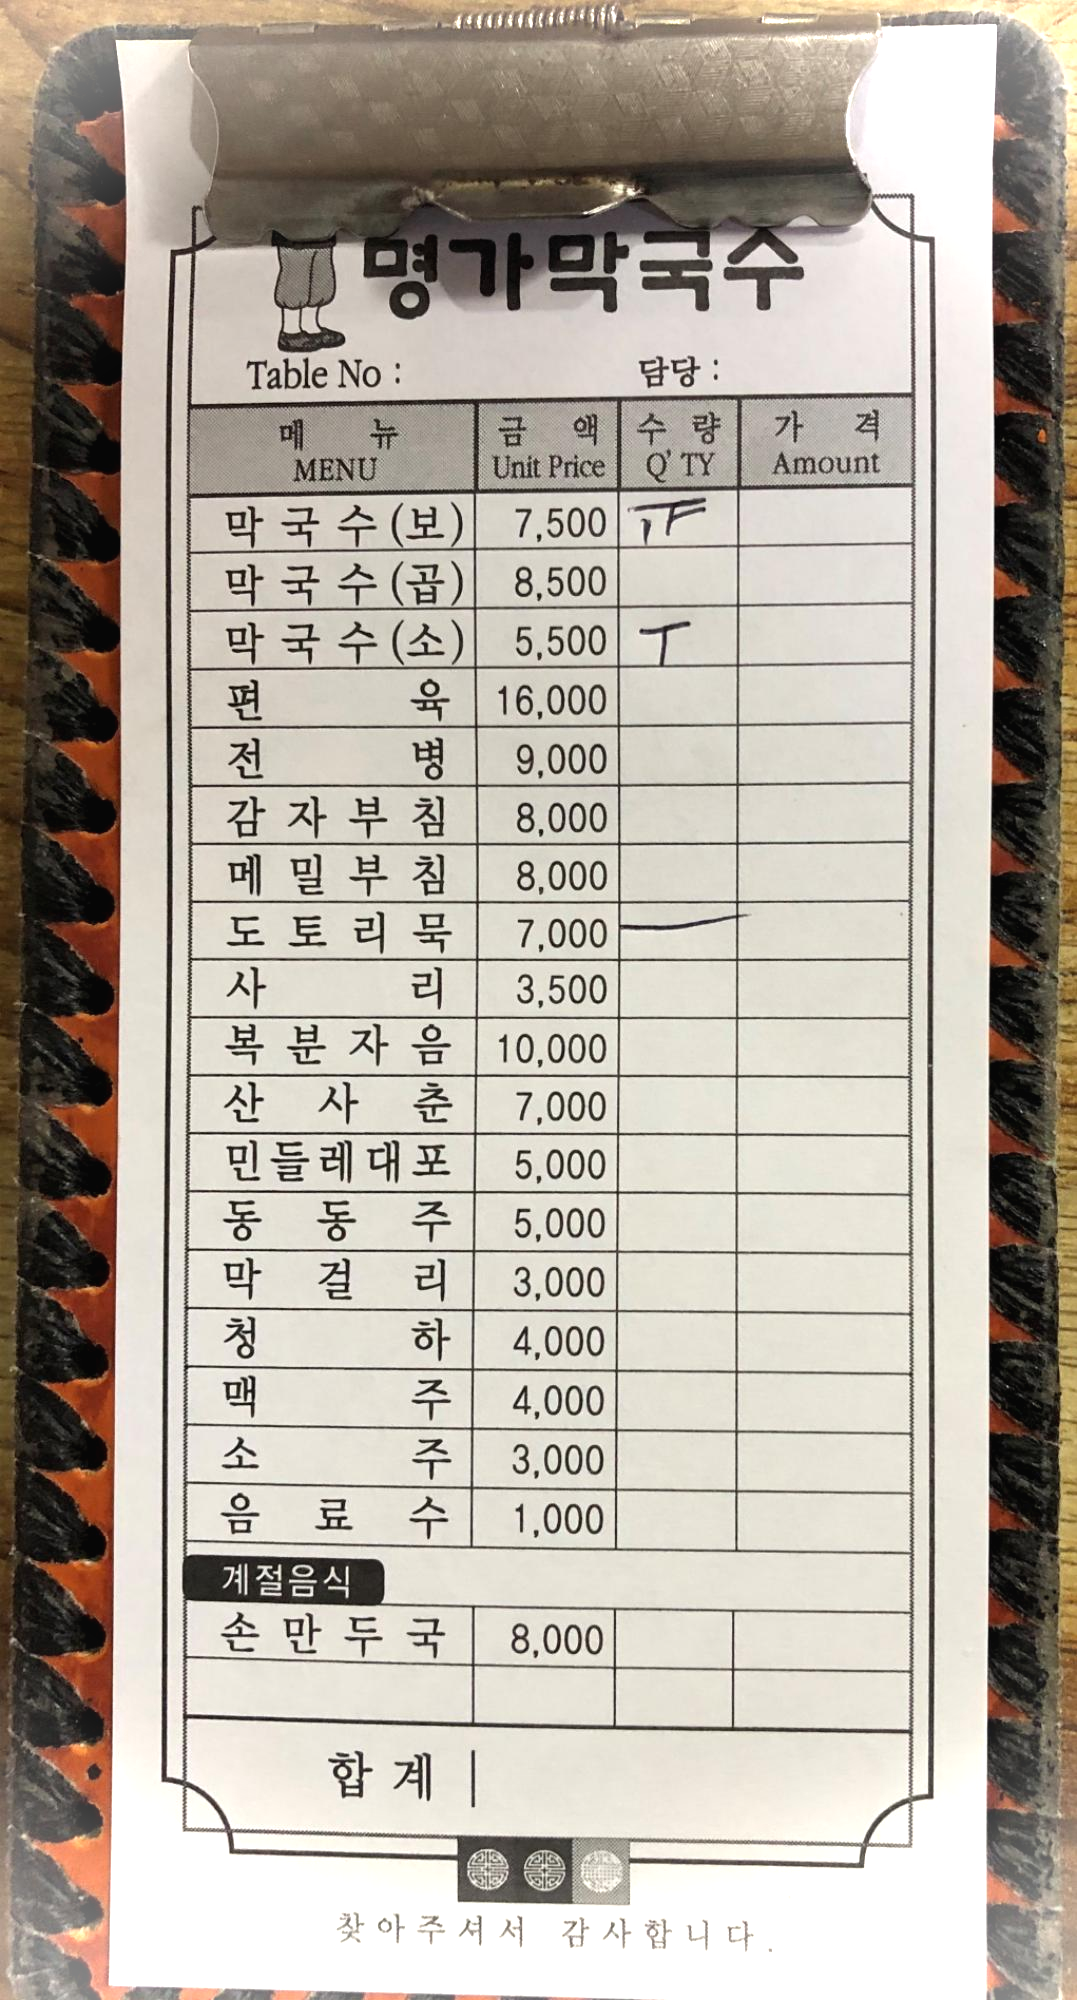 명가막국수
Table No : 담당 :
메뉴 금액 수량 가격
MENU Unit Price Q'TY Amount
막국수(보) 7,500
막국수(곱) 8,500
막국수(소) 5,500
편육 16,000
전병 9,000
감자부침 8,000
메밀부침 8,000
도토리묵 7,000
사리 3,500
복분자음 10,000
산사춘 7,000
민들레대포 5,000
동동주 5,000
막걸리 3,000
청하 4,000
맥주 4,000
소주 3,000
음료수 1,000
계절음식
손만두국 8,000
합계
찾아주셔서 감사합니다.